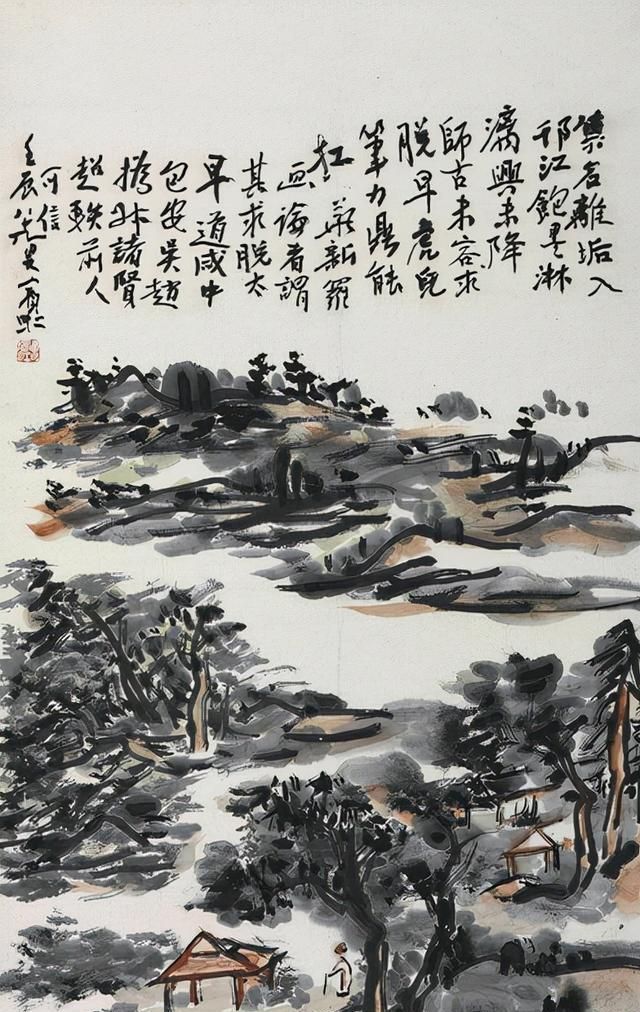 集名離垢入
邗江飽墨淋
漓興未降
師古未容求
脱早虎兒
筆力鼎能
扛 華新羅
畫論者謂
其求脱太
早道咸中
包安吳趙
撝叔諸賢
超軼前人
可信
壬辰八十九叟賓虹